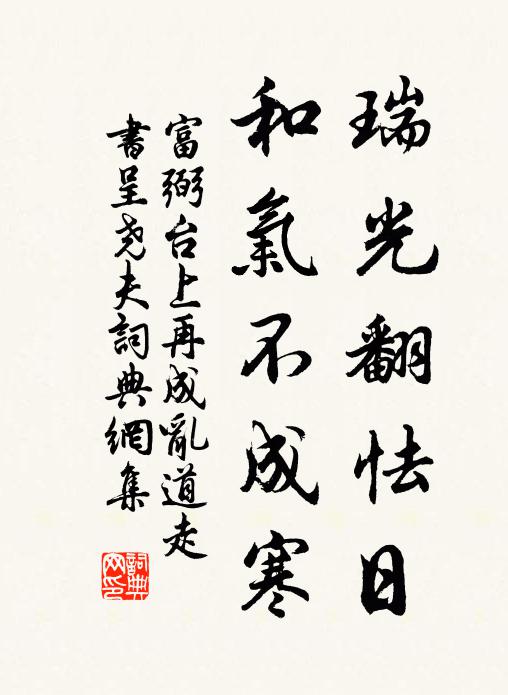 瑞光翻怯日
和氣不成寒
富弼台上再成亂道走
書呈尧夫詞典網集
詞典
网印